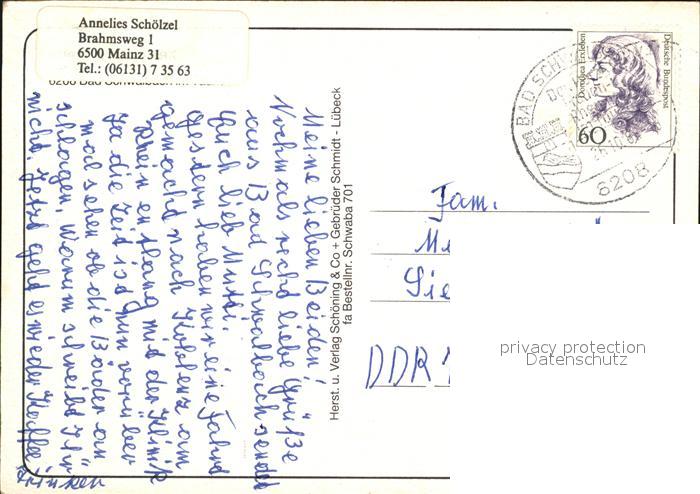 Annelies Schölzel
Brahmsweg 1
6500 Mainz 31
Tel.: (06131) 7 35 63
Meine lieben Beiden!
Nochmals recht liebe Grüße
aus Bad Schwalbach sendet
Euch lieb Mutti.
Gestern haben wir eine Fahrt
gemacht nach Koblenz am
Rhein entlang mit der Klinik
Ja die Zeit ist nun vorüber
mal sehen ob die Bäder an
schlagen. Warum schreibt Ihr
nicht. Jetzt geht es wieder Kaffee
trinken
Herst. u. Verlag Schöning & Co + Gebrüder Schmidt - Lübeck
fa Bestellnr. Schwaba 701
Deutsche Bundespost
Dorothea Erxleben
60
BAD SCH
8208
Fam.
DDR
privacy protection
Datenschutz